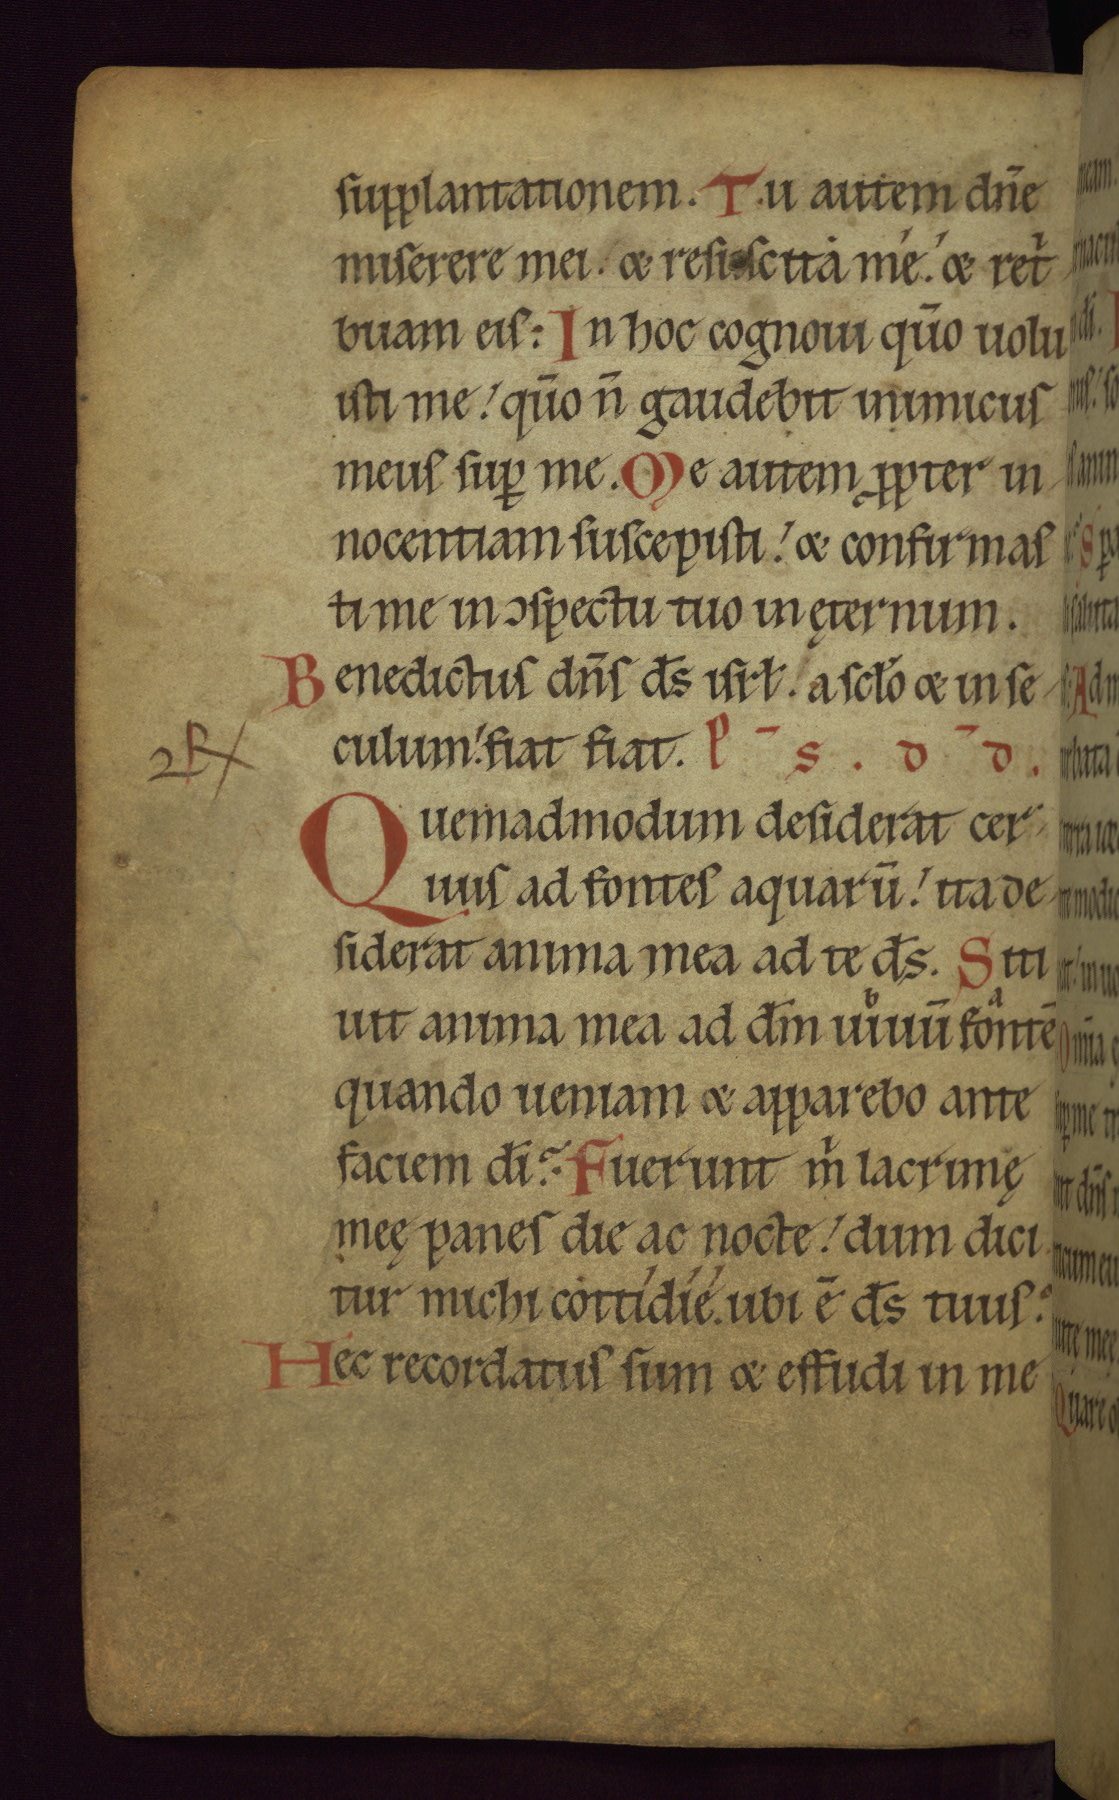 supplantationem. Tu autem dn̄e
miserere mei. & resuscita me. & ret
buam eis: In hoc cognoui qūo uolu
isti me! qūo n̄ gaudebit inimicus
meus sup̱ me. Me autem ꝓpter in
nocentiam suscepisti! & confirmas
ti me in ↄspectu tuo in ęternum.
Benedictus dn̄s d̄s isrł. a scło & in se
culum! fiat fiat. P̄ S . D D̄ .
Quemadmodum desiderat cer
uus ad fontes aquarū! ita de
siderat anima mea ad te d̄s. Siti
uit anima mea ad d̄m uiuū fontē
quando ueniam & apparebo ante
faciem d̄i? Fuerunt m lacrimę
meę panes die ac nocte! dum dici
tur michi cottidie. ubi ē d̄s tuus?
Hęc recordatus sum & effudi in me